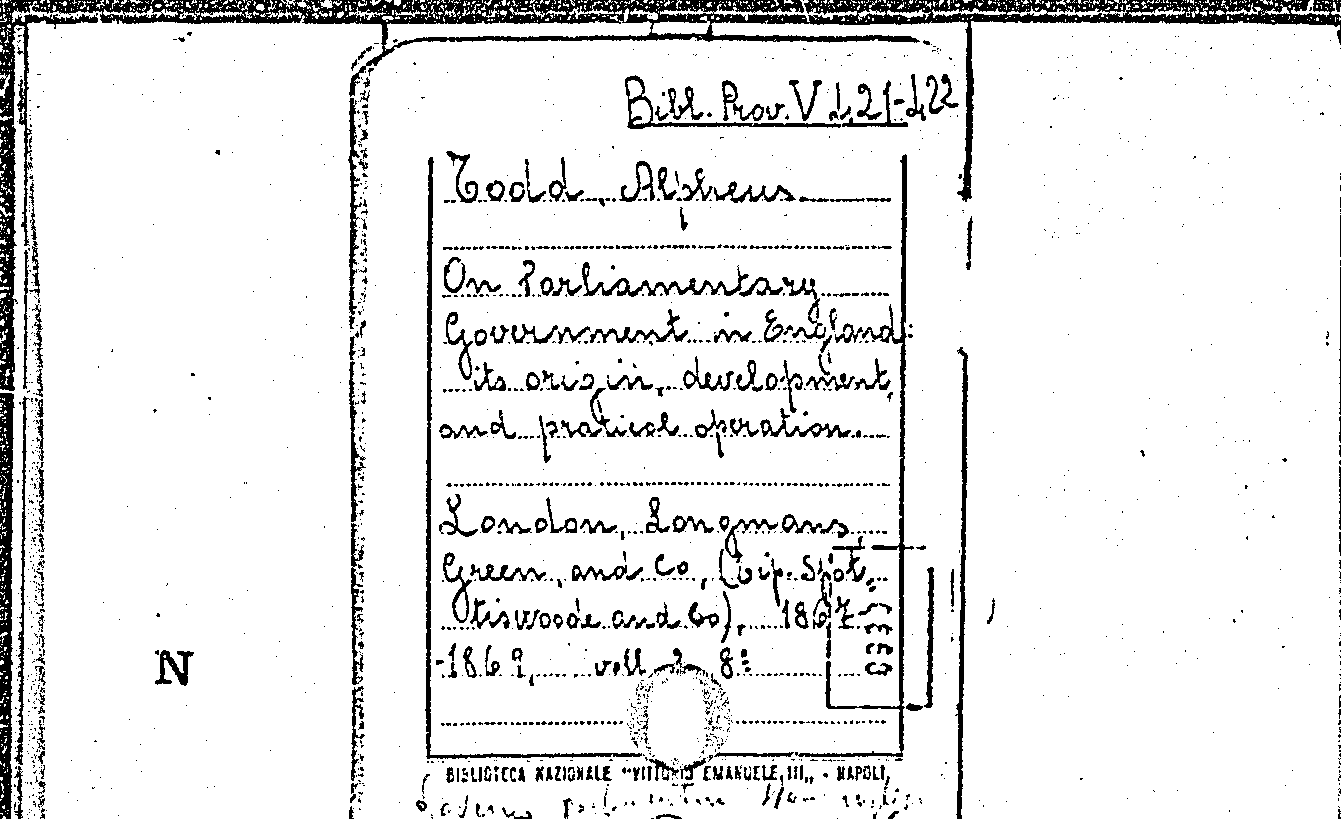 Bibl. Prov. V 421-422
Todd, Alpheus.
On Parliamentary
Government in England:
its origin, development,
and pratical operation.
London, Longmans,
Green, and Co, (tip. Spot-
tiswoode and Co), 1867-
-1869, voll. 2 8º
N
BIBLIOTECA NAZIONALE "VITTORIO EMANUELE III" - NAPOLI